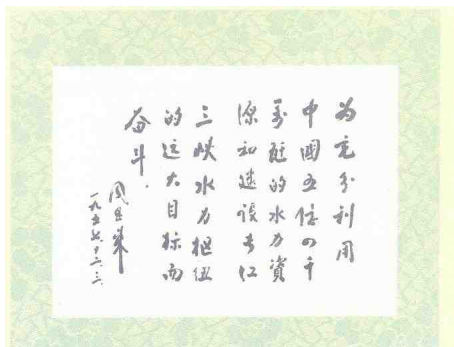 为充分利用
中國五亿四千
萬瓩的水力資
源和建设长江
三峡水力枢纽
的远大目标而
奋斗.
周恩来
一九五七.十二.三.